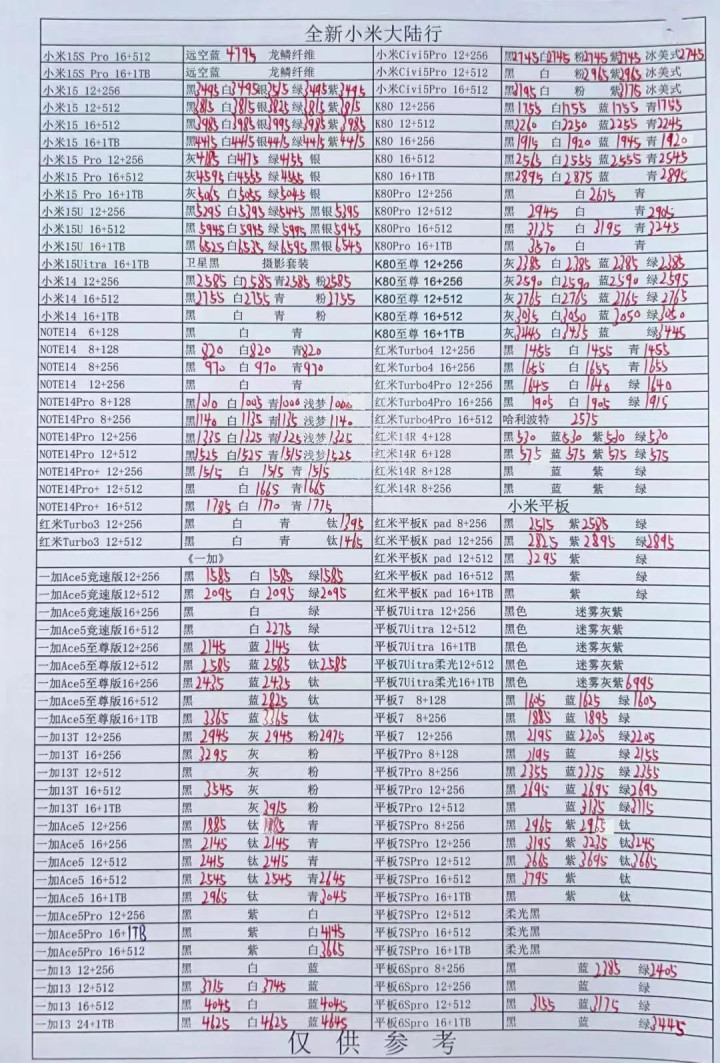 全新小米大陆行
小米15S Pro 16+512 远空蓝 4795 龙鳞纤维 小米Civi5Pro 12+256 黑2745白2745 粉2745紫2745 冰美式2745
小米15S Pro 16+1TB 远空蓝 龙鳞纤维 小米Civi5Pro 12+512 黑 白 粉2965紫2965 冰美式
小米15 12+256 黑3495白3495银3515绿3495紫3495 小米Civi5Pro 16+512 黑3195白 粉 紫3175 冰美式
小米15 12+512 黑3815白3815银3825绿3815紫3815 K80 12+256 黑1755 白1755 蓝1755 青1755
小米15 16+512 黑3985白3985银3995绿3985紫3985 K80 12+512 黑2260 白2250 蓝2255 青2245
小米15 16+1TB 黑4415白4415银4415绿4415紫4415 K80 16+256 黑1915 白1920 蓝1945 青1920
小米15 Pro 12+256 灰4185 白4175 绿4155 银 K80 16+512 黑2565 白2555 蓝2555 青2545
小米15 Pro 16+512 灰4595白4555 绿4555 银 K80 16+1TB 黑2895 白2875 蓝 青2895
小米15 Pro 16+1TB 灰5065 白5055 绿5045 银 K80Pro 12+256 黑 白2675 青
小米15U 12+256 黑5295 白5395 绿5445 黑银5395 K80Pro 12+512 黑 2945 白 青2905
小米15U 16+512 黑5945白5945 绿5995 黑银5945 K80Pro 16+512 黑 3135 白 3195 青3245
小米15U 16+1TB 黑6525白6535 绿6595 黑银6545 K80Pro 16+1TB 黑 3570 白 青
小米15Uitra 16+1TB 卫星黑 摄影套装 K80至尊 12+256 灰2385 白2385 蓝2385 绿2385
小米14 12+256 黑2585 白2585 青2585 粉2585 K80至尊 16+256 灰2590 白2590 蓝2590 绿2595
小米14 16+512 黑2755 白2755 青 粉2755 K80至尊 12+512 灰2765 白2765 蓝2765 绿2765
小米14 16+1TB 黑 白 青 粉 K80至尊 16+512 灰3035 白3030 蓝3050 绿3050
NOTE14 6+128 黑 白 青 K80至尊 16+1TB 灰3445 白3435 蓝 绿3445
NOTE14 8+128 黑820 白820 青820 红米Turbo4 12+256 黑 1455 白1455 青1455
NOTE14 8+256 黑970 白970 青970 红米Turbo4 16+256 黑 1655 白1655 青1655
NOTE14 12+256 黑 白 青 红米Turbo4Pro 12+256 黑 1645 白1640 绿1640
NOTE14Pro 8+128 黑1010 白1005 青1000 浅梦1000 红米Turbo4Pro 16+256 黑 1905 白1905 绿1915
NOTE14Pro 8+256 黑1140 白1135 青1135 浅梦1140 红米Turbo4Pro 16+512 哈利波特 2575
NOTE14Pro 12+256 黑1335 白1325 青1325浅梦1325 红米14R 4+128 黑530 蓝530 紫530 绿530
NOTE14Pro 12+512 黑1525 白1525 青1515浅梦1525 红米14R 6+128 黑575 蓝575 紫575 绿575
NOTE14Pro+ 12+256 黑1515 白 1515 青1515 红米14R 8+128 黑 蓝 紫 绿
NOTE14Pro+ 12+512 黑 白1665 青1665 红米14R 8+256 黑 蓝 紫 绿
NOTE14Pro+ 16+512 黑 1785 白1770 青1775 小米平板
红米Turbo3 12+256 黑 白 青 钛1395 红米平板K pad 8+256 黑 2515 紫2585 绿
红米Turbo3 12+512 黑 白 青 钛1465 红米平板K pad 12+256 黑 2825 紫2895 绿2895
《一加》 红米平板K pad 12+512 黑3295 紫 绿
一加Ace5竞速版12+256 黑 1585 白 1585 绿1585 红米平板K pad 16+512 黑 紫 绿
一加Ace5竞速版12+512 黑 2095 白 2095 绿2095 红米平板K pad 16+1TB 黑 紫 绿
一加Ace5竞速版16+256 黑 白 绿 平板7Uitra 12+256 黑色 迷雾灰紫
一加Ace5竞速版16+512 黑 白2275 绿 平板7Uitra 12+512 黑色 迷雾灰紫
一加Ace5至尊版12+256 黑 2145 蓝2145 钛 平板7Uitra 16+1TB 黑色 迷雾灰紫
一加Ace5至尊版12+512 黑 2585 蓝2585 钛2585 平板7Uitra柔光12+512 黑色 迷雾灰紫
一加Ace5至尊版16+256 黑2435 蓝2425 钛 平板7Uitra柔光16+1TB 黑色 迷雾灰紫6995
一加Ace5至尊版16+512 黑 蓝2825 钛 平板7 8+128 黑 1605 蓝1625 绿1605
一加Ace5至尊版16+1TB 黑 3365 蓝3365 钛 平板7 8+256 黑 1885 蓝1895 绿
一加13T 12+256 黑 2945 灰 2945 粉2975 平板7 12+256 黑 2195 蓝2205 绿2205
一加13T 16+256 黑 3295 灰 粉 平板7Pro 8+128 黑 2195 蓝 绿 2155
一加13T 12+512 黑 灰 粉 平板7Pro 8+256 黑 2355 蓝2335 绿2355
一加13T 16+512 黑 3545 灰 粉 平板7Pro 12+256 黑 2695 蓝2695 绿2695
一加13T 16+1TB 黑 灰2915 粉 平板7Pro 12+512 黑 蓝3135 绿3115
一加Ace5 12+256 黑 1885 钛1885 青 平板7SPro 8+256 黑 2965 紫2965 钛
一加Ace5 16+256 黑 2145 钛2145 青 平板7SPro 12+256 黑 3195 紫3235 钛3245
一加Ace5 12+512 黑 2415 钛2415 青 平板7SPro 12+512 黑 3665 紫3695 钛3665
一加Ace5 16+512 黑 2545 钛2545 青2645 平板7SPro 16+512 黑 3795 紫 钛
一加Ace5 16+1TB 黑 2965 钛 青3045 平板7SPro 16+1TB 黑 紫 钛
一加Ace5Pro 12+256 黑 紫 白 平板7SPro 12+512 柔光黑
一加Ace5Pro 16+1TB 黑 紫 白4145 平板7SPro 16+512 柔光黑
一加Ace5Pro 16+512 黑 紫 白3665 平板7SPro 16+1TB 柔光黑
一加13 12+256 黑 白 蓝 平板6Spro 8+256 黑 蓝2385 绿2405
一加13 12+512 黑 3715 白3745 蓝 平板6Spro 12+256 黑 蓝 绿
一加13 16+512 黑 4045 白 蓝4045 平板6Spro 12+512 黑 3155 蓝3175 绿
一加13 24+1TB 黑 4625 白4625 蓝4645 平板6Spro 16+1TB 黑 蓝 绿3445
仅供参考